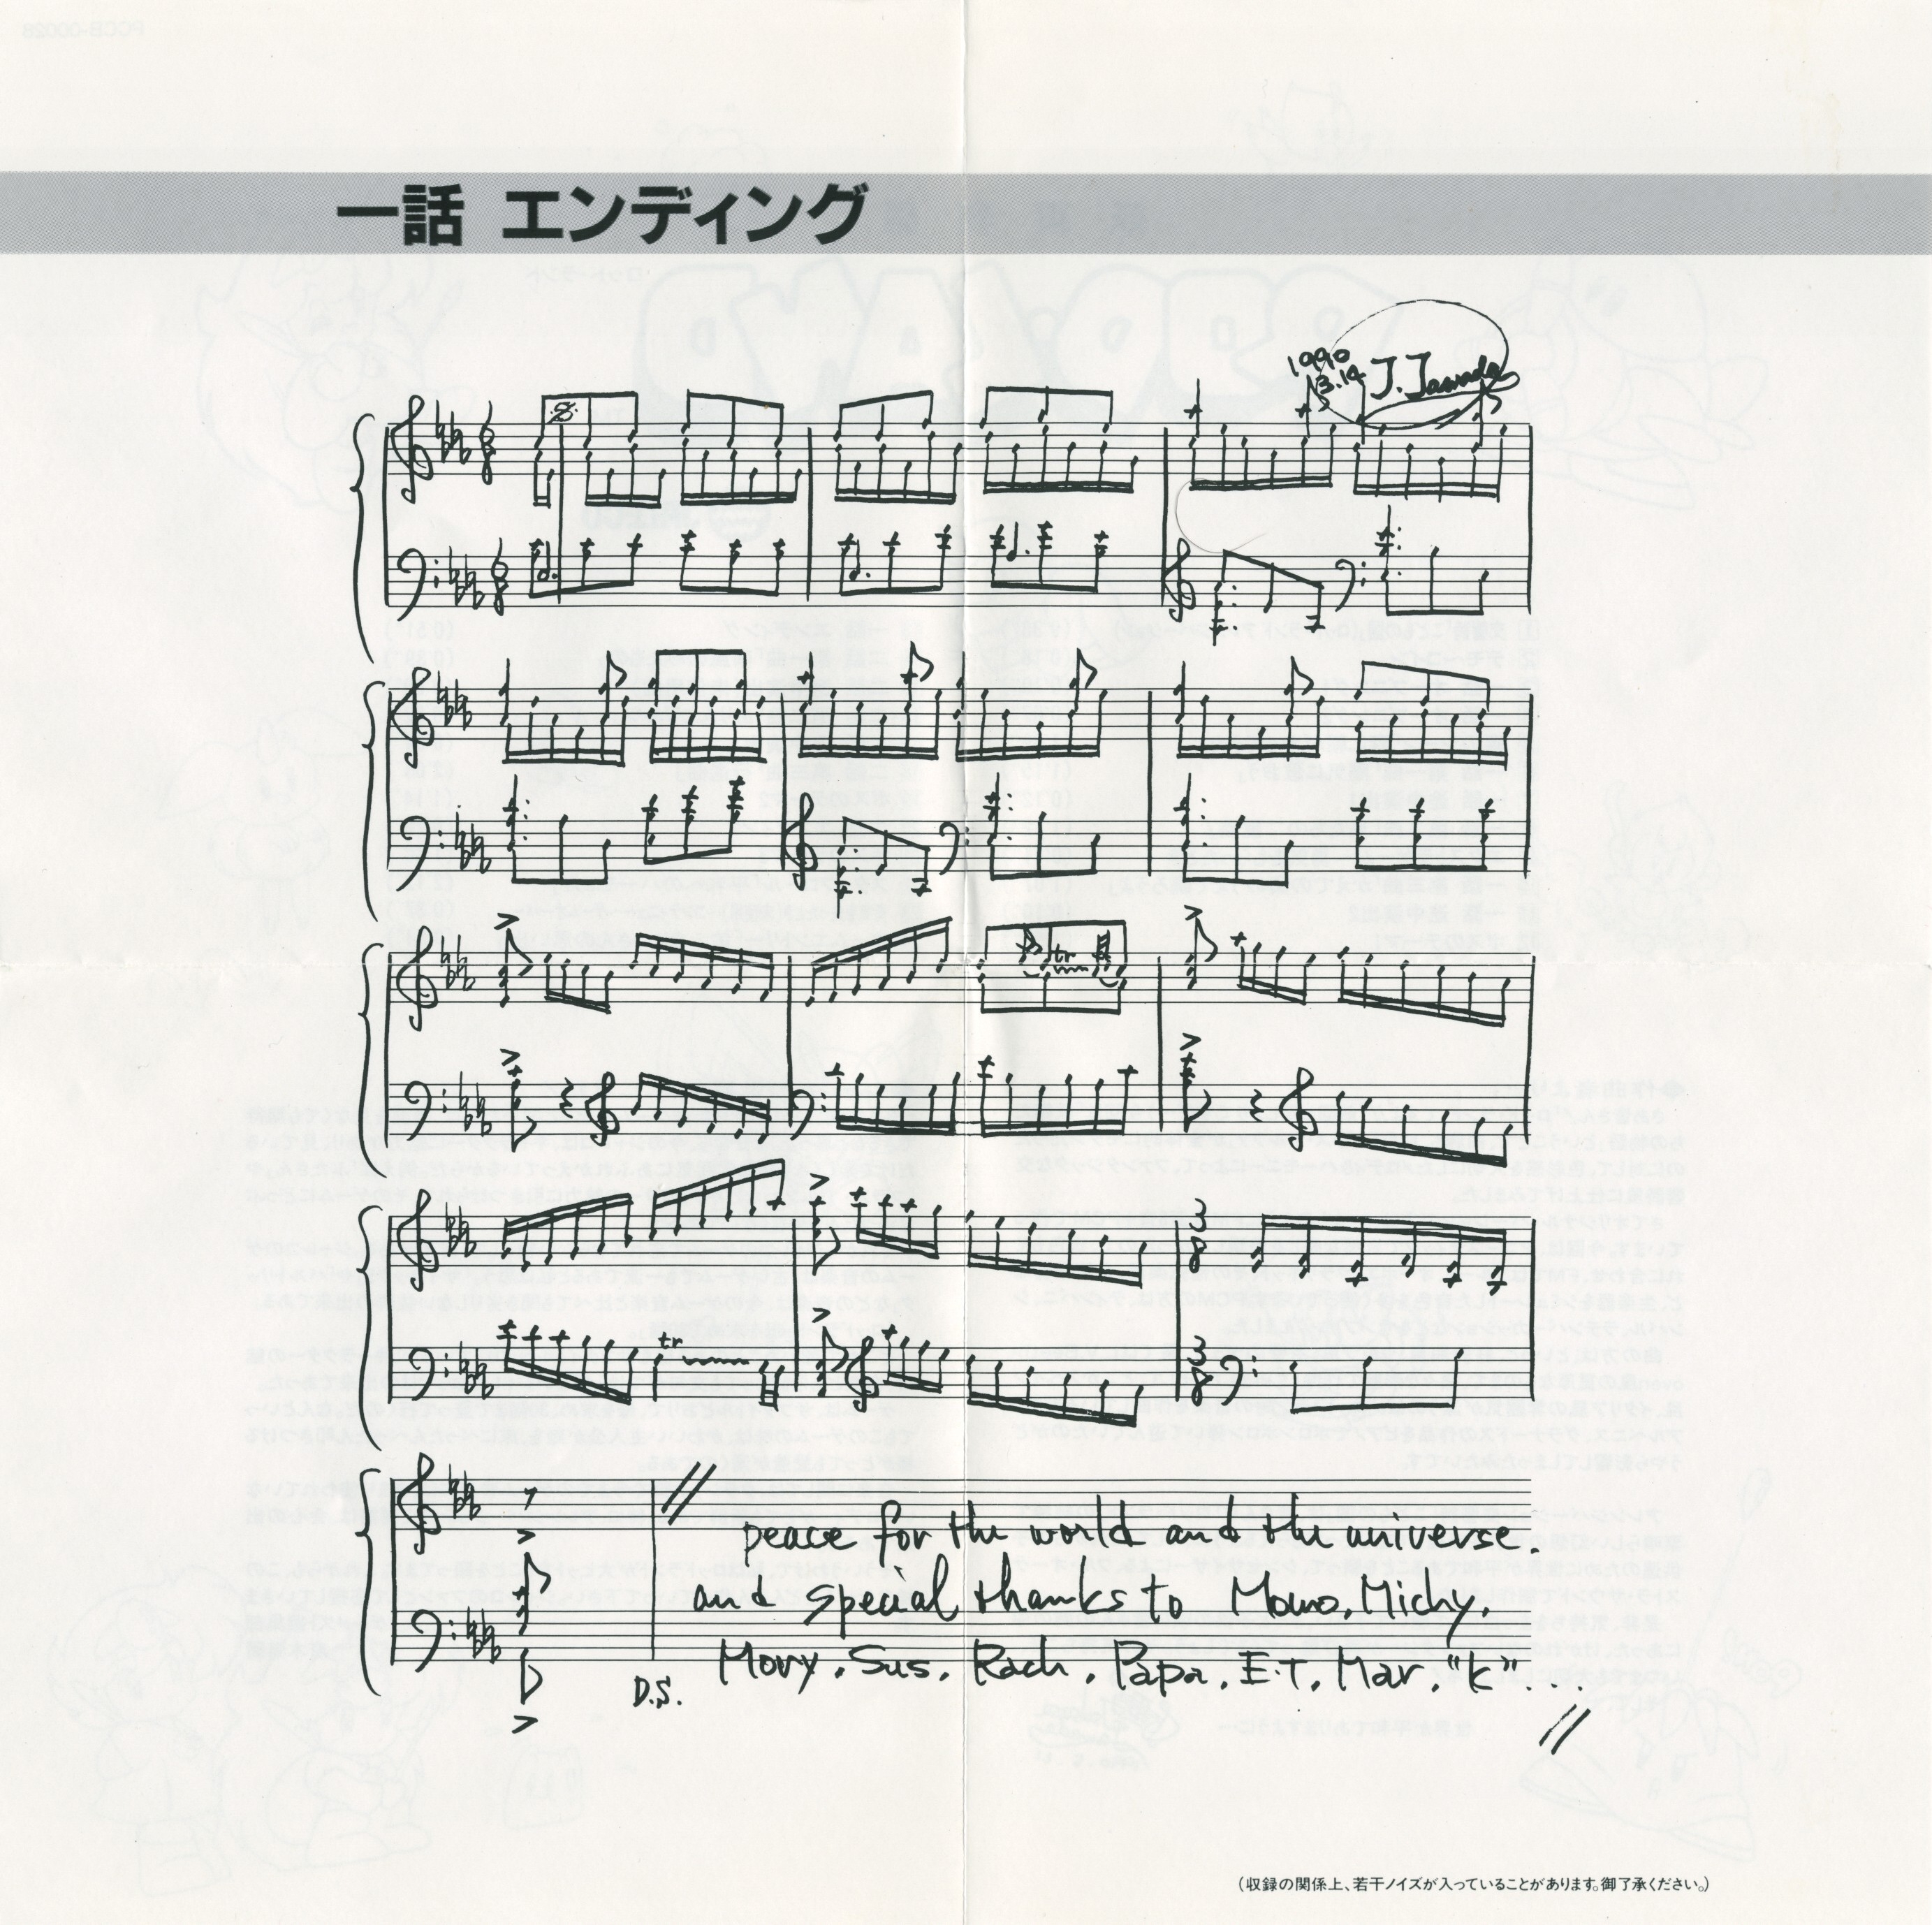 一話 エンディング
1990
3.14
tr
tr
3
8
3
8
peace for the world and the universe.
and special thanks to Momo, Michy,
D.S.
Movy, Sus, Rach, Papa, E.T, Mar, "K"...
(収録の関係上、若干ノイズが入っていることがあります。御了承ください。)